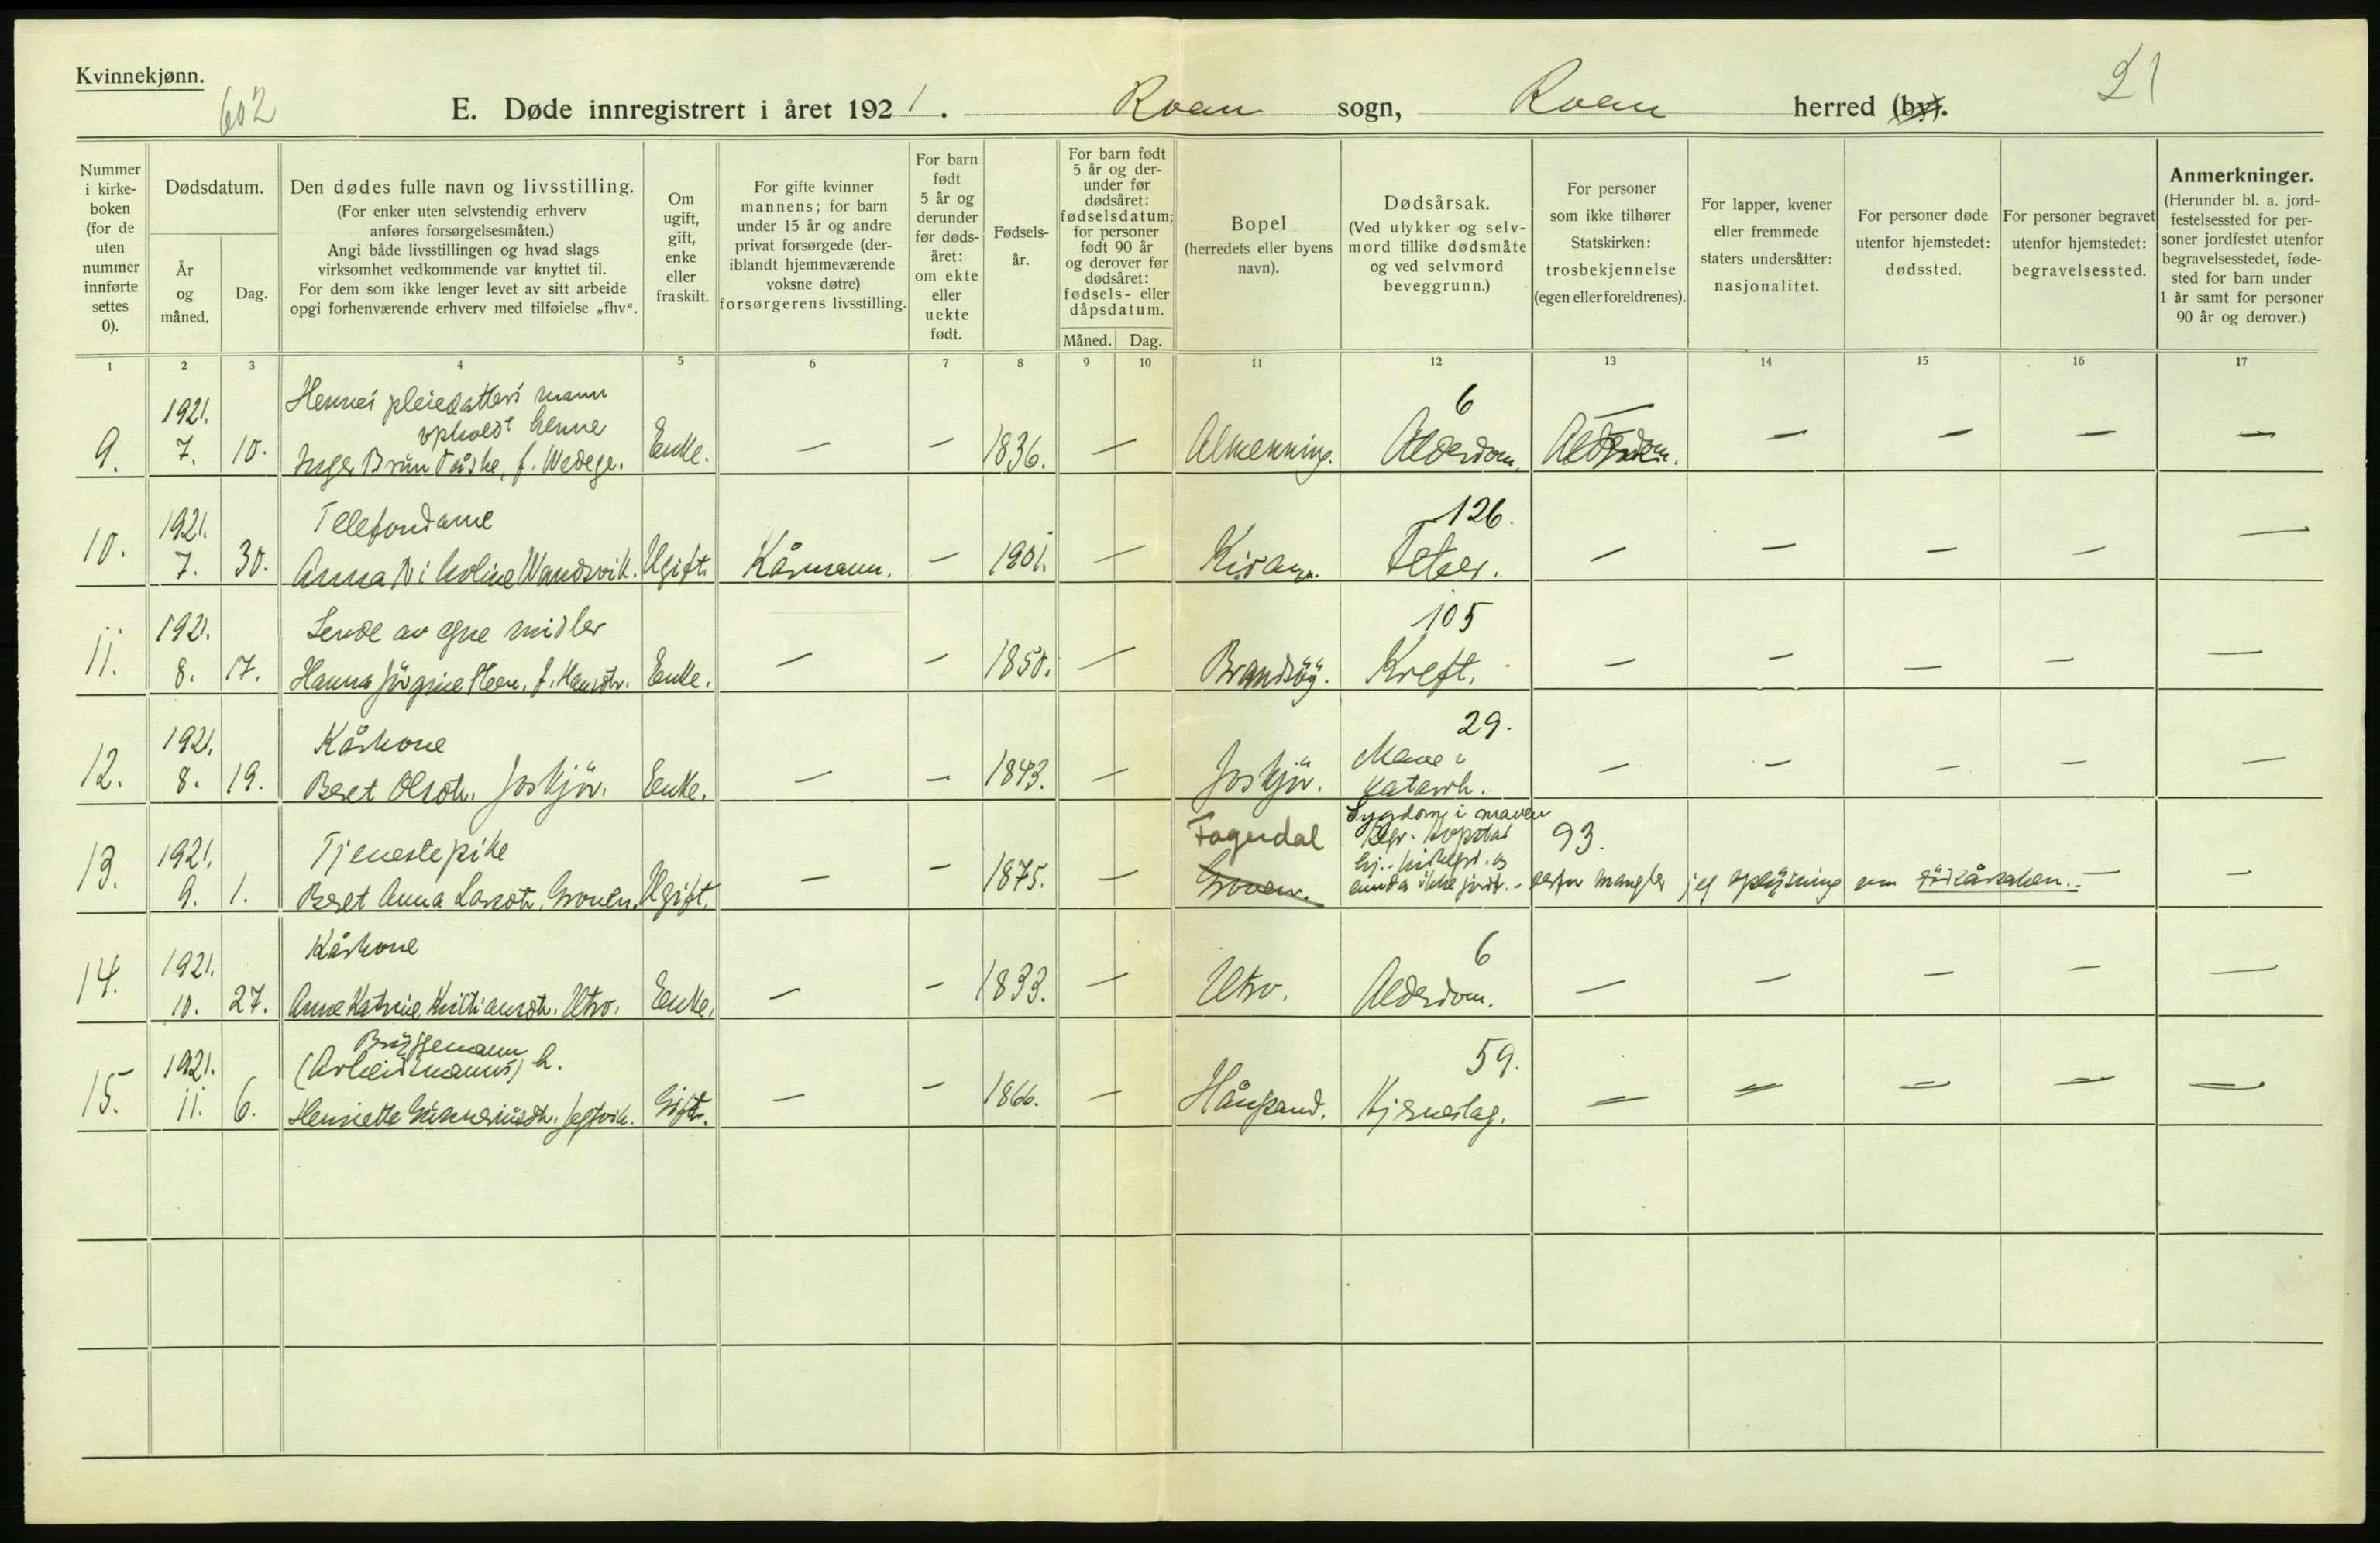 Kvinnekjønn.
602
E. Døde innregistrert i året 1921. Roan sogn, Roan herred (by).
21
Nummer i kirkeboken (for de uten nummer innførte settes 0).
Dødsdatum.
År og måned.
Dag.
Den dødes fulle navn og livsstilling.
(For enker uten selvstendig erhverv anføres forsørgelsesmåten.)
Angi både livsstillingen og hvad slags virksomhet vedkommende var knyttet til.
For dem som ikke lenger levet av sitt arbeide opgi forhenværende erhverv med tilføielse „fhv“.
Om ugift, gift, enke eller fraskilt.
For gifte kvinner mannens; for barn under 15 år og andre privat forsørgede (deriblandt hjemmeværende voksne døtre) forsørgerens livsstilling.
For barn født 5 år og derunder før dødsåret: om ekte eller uekte født.
Fødselsår.
For barn født 5 år og derunder før dødsåret: fødselsdatum; for personer født 90 år og derover før dødsåret: fødsels- eller dåpsdatum.
Måned. Dag.
Bopel
(herredets eller byens navn).
Dødsårsak.
(Ved ulykker og selvmord tillike dødsmåte og ved selvmord beveggrunn.)
For personer som ikke tilhører Statskirken: trosbekjennelse (egen eller foreldrenes).
For lapper, kvener eller fremmede staters undersåtter: nasjonalitet.
For personer døde utenfor hjemstedet: dødssted.
For personer begravet utenfor hjemstedet: begravelsessted.
Anmerkninger.
(Herunder bl. a. jordfestelsessted for personer jordfestet utenfor begravelsesstedet, fødested for barn under 1 år samt for personer 90 år og derover.)
1 2 3 4 5 6 7 8 9 10 11 12 13 14 15 16 17
Hennes pleiedatters mann
1921. opholdt henne 6
9. 7. 10. Inger Brun Påske, f. Wedege. Enke. — — 1836. — Almenning. Alderdom. Alderdom. — — — —
1921. Telefondame 126.
10. 7. 30. Anna Nikoline Wandsvik. Ugift. Kårmann. — 1901. — Kiran. Feber. — — — — —
1921. Levde av egne midler 105
11. 8. 17. Hanna Jørgine Steen, f. Hansdtr. Enke. — — 1850. — Brandsøy. Kreft. — — — — —
1921. Kårkone 29.
12. 8. 19. Beret Olsdtr. Joskjør. Enke. — — 1843. — Joskjør. Mave katarrh. — — — — —
1921. Tjenestepike Fagerdal Sygdom i maven 93.
13. 9. 1. Beret Anna Larsdtr. Grønen. Ugift. — — 1875. — Grønen. ennda ikke jordf. - derfor mangler jeg oplysning om dødsårsaken. — —
1921. Kårkone 6
14. 10. 27. Anne Katrine Kristiansdtr. Utro. Enke. — — 1833. — Utro. Alderdom. — — — — —
Bryggemann
1921. (Arbeidsmanns) h. 59.
15. 11. 6. Henriette Gunneriusdtr. Jegtvik. Gift. — — 1866. — Hånsand. Hjerneslag. — — — — —